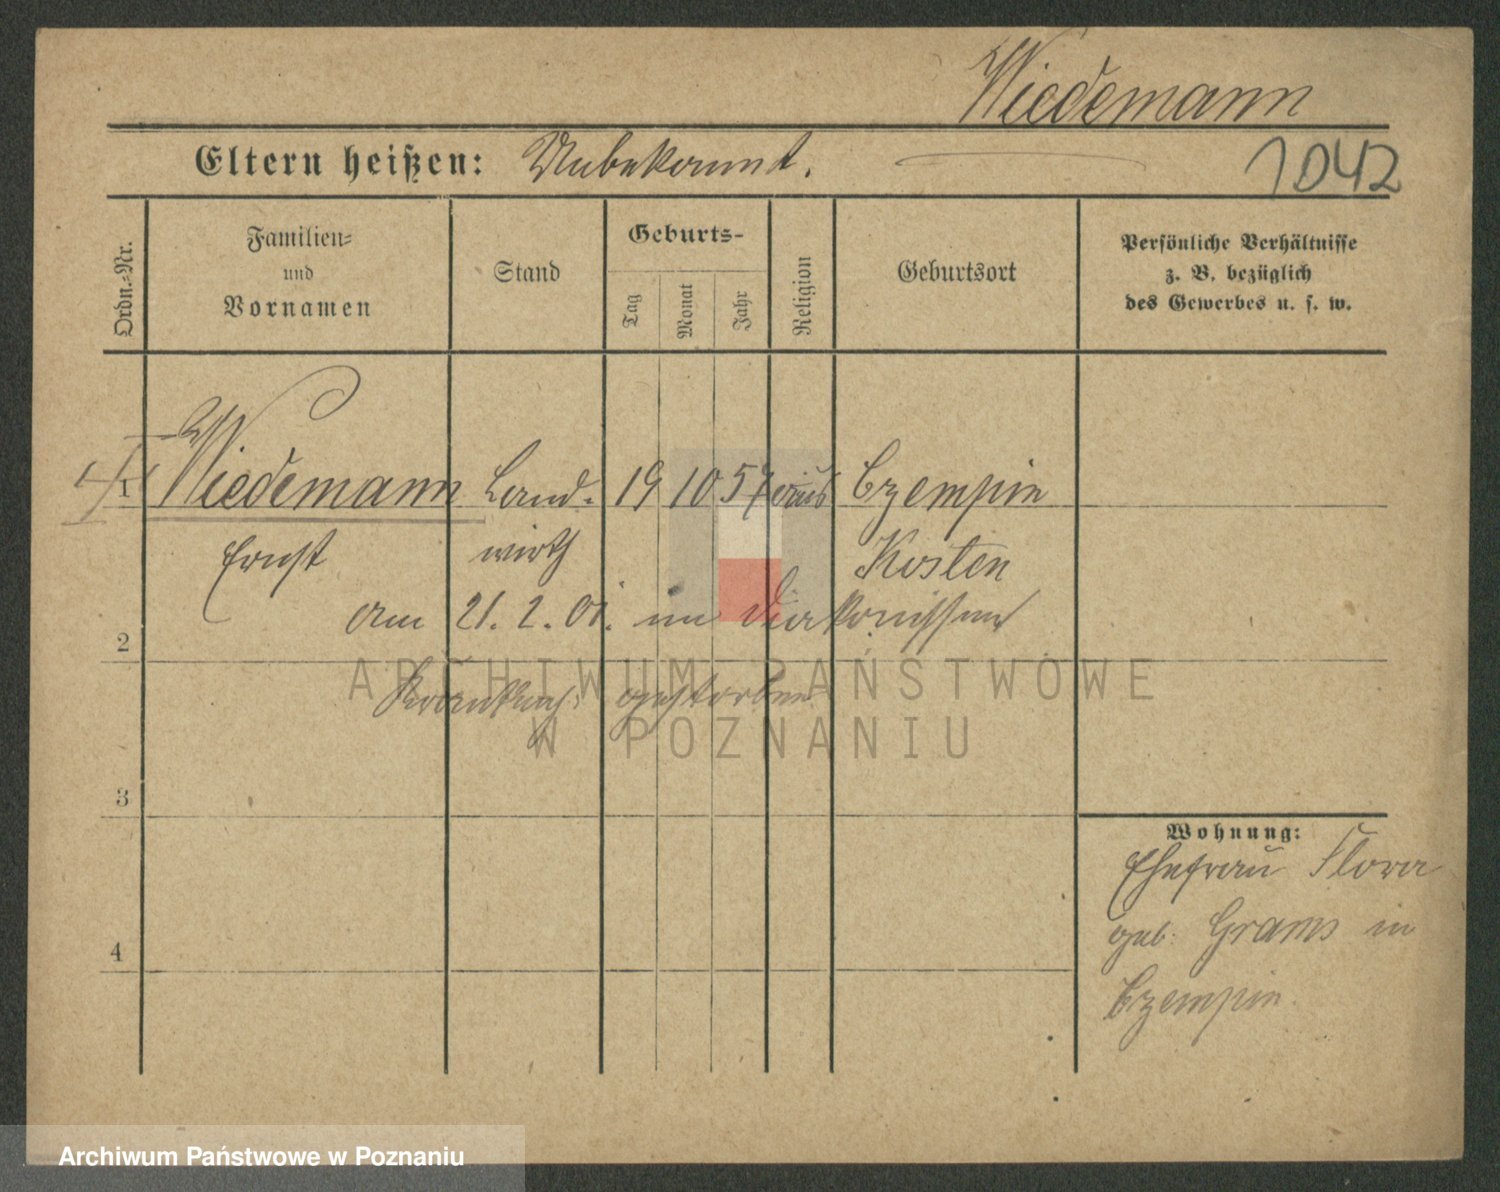 Wiedemann
Eltern heißen: Unbekannt.
1042
Ordn.-Nr.
Familien-
und
Vornamen
Stand
Geburts-
Tag
Monat
Jahr
Religion
Geburtsort
Persönliche Verhältnisse
z. B. bezüglich
des Gewerbes u. s. w.
1 Wiedemann Land- 19 10 57 aus Czempin
Ernst wirth Kosten
am 21. 2. 01. im Diakonissen
2
Krankenh. gestorben
ARCHIWUM PAŃSTWOWE
W POZNANIU
3
Wohnung:
Ehefrau Flora
geb. Grams in
4
Czempin.
Archiwum Państwowe w Poznaniu